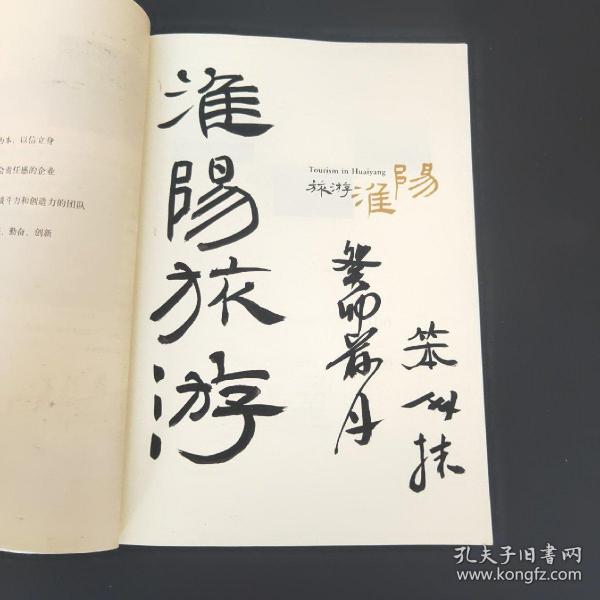 本，以信立身
会责任感的企业
战斗力和创造力的团队
、勤奋、创新
淮陽旅游
Tourism in Huaiyang
旅游淮陽
癸卯 月
笨
孔夫子旧书网
www.kongfz.com